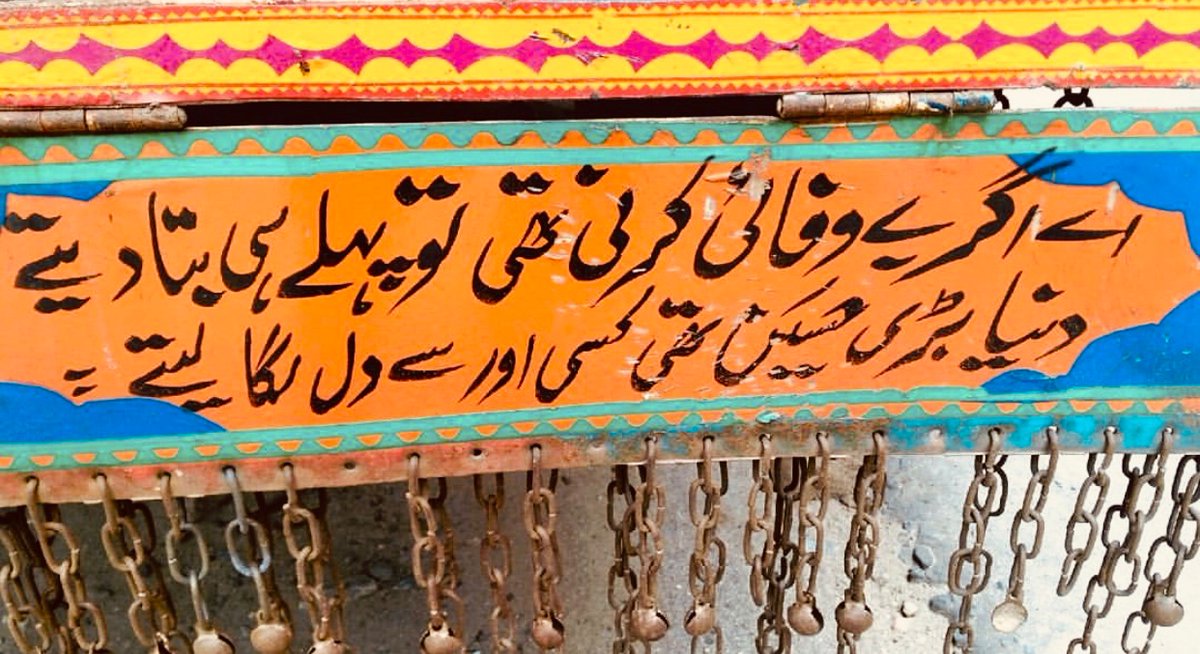 اے اگر بے وفائی کرنی تھی تو پہلے ہی بتا دیتے
دنیا بڑی حسین تھی کسی اور سے دل لگا لیتے